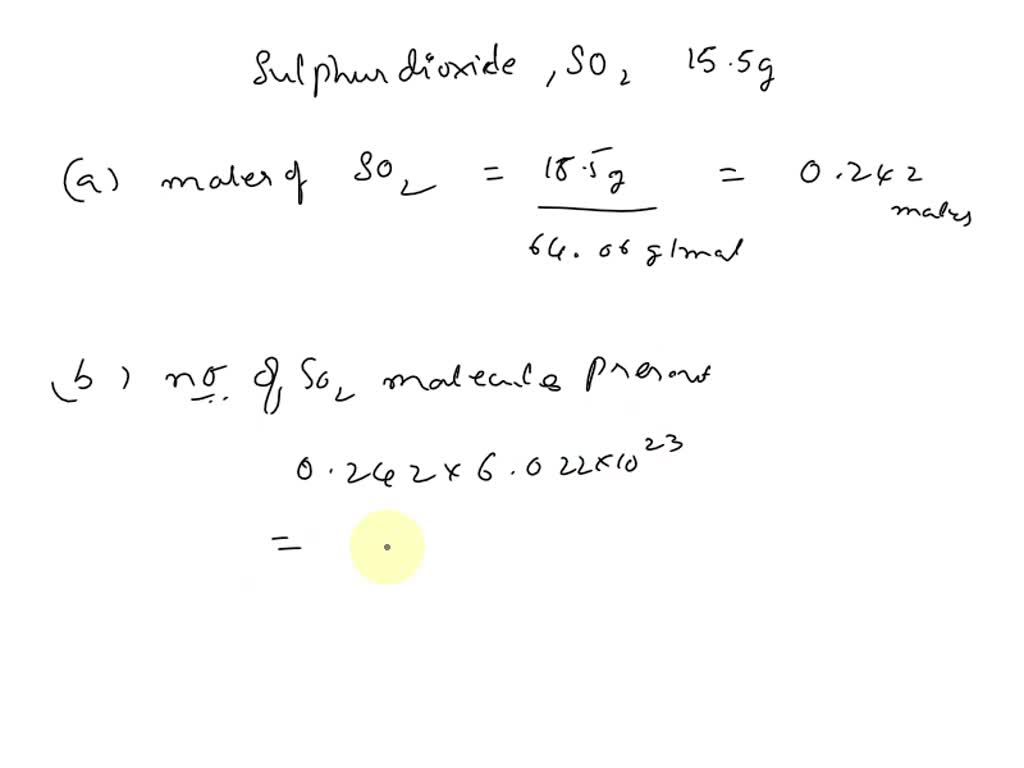 Sulphur dioxide, SO2 15.5g
(a) moles of SO2 = 15.5g / 64.06 g/mol = 0.242 moles
(b) no. of SO2 molecules present
0.242 x 6.022 x 10^23
=